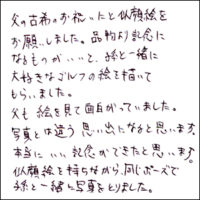 父の古希のお祝いたと似顔絵を
お願いしました。品物より記念に
なるものがいいと、孫と一緒に
大好きなゴルフの絵を描いて
もらいました。
父も絵を見て面白がっていました。
写真とは違う思い出になると思います。
本当にいい記念ができたと思います。
似顔絵を持ちながら、同じポーズで
孫と一緒に写真をとりました。